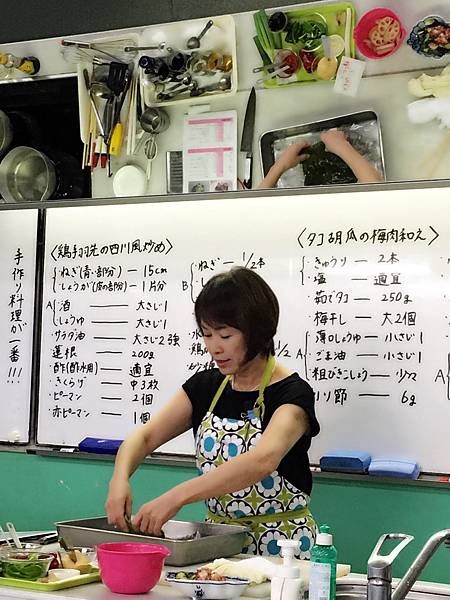 手作り料理が一番!!!
〈鶏手羽先の四川風炒め〉
ねぎ(青い部分) ― 15cm
しょうが(皮の部分) ― 1片分
A
酒 ― 大さじ1
しょうゆ ― 大さじ1
サラダ油 ― 大さじ2強
蓮根 ― 200g
酢(酢水用) ― 適宜
きくらげ ― 中3枚
ピーマン ― 2個
赤ピーマン ― 1個
B
ねぎ ― 1/2本
〈タコ胡瓜の梅肉和え〉
きゅうり ― 2本
塩 ― 適宜
茹でダコ ― 250g
梅干し ― 大2個
A
薄口しょうゆ ― 小さじ1
ごま油 ― 小さじ1
粗びきこしょう ― 少々
カツオ節 ― 6g
A